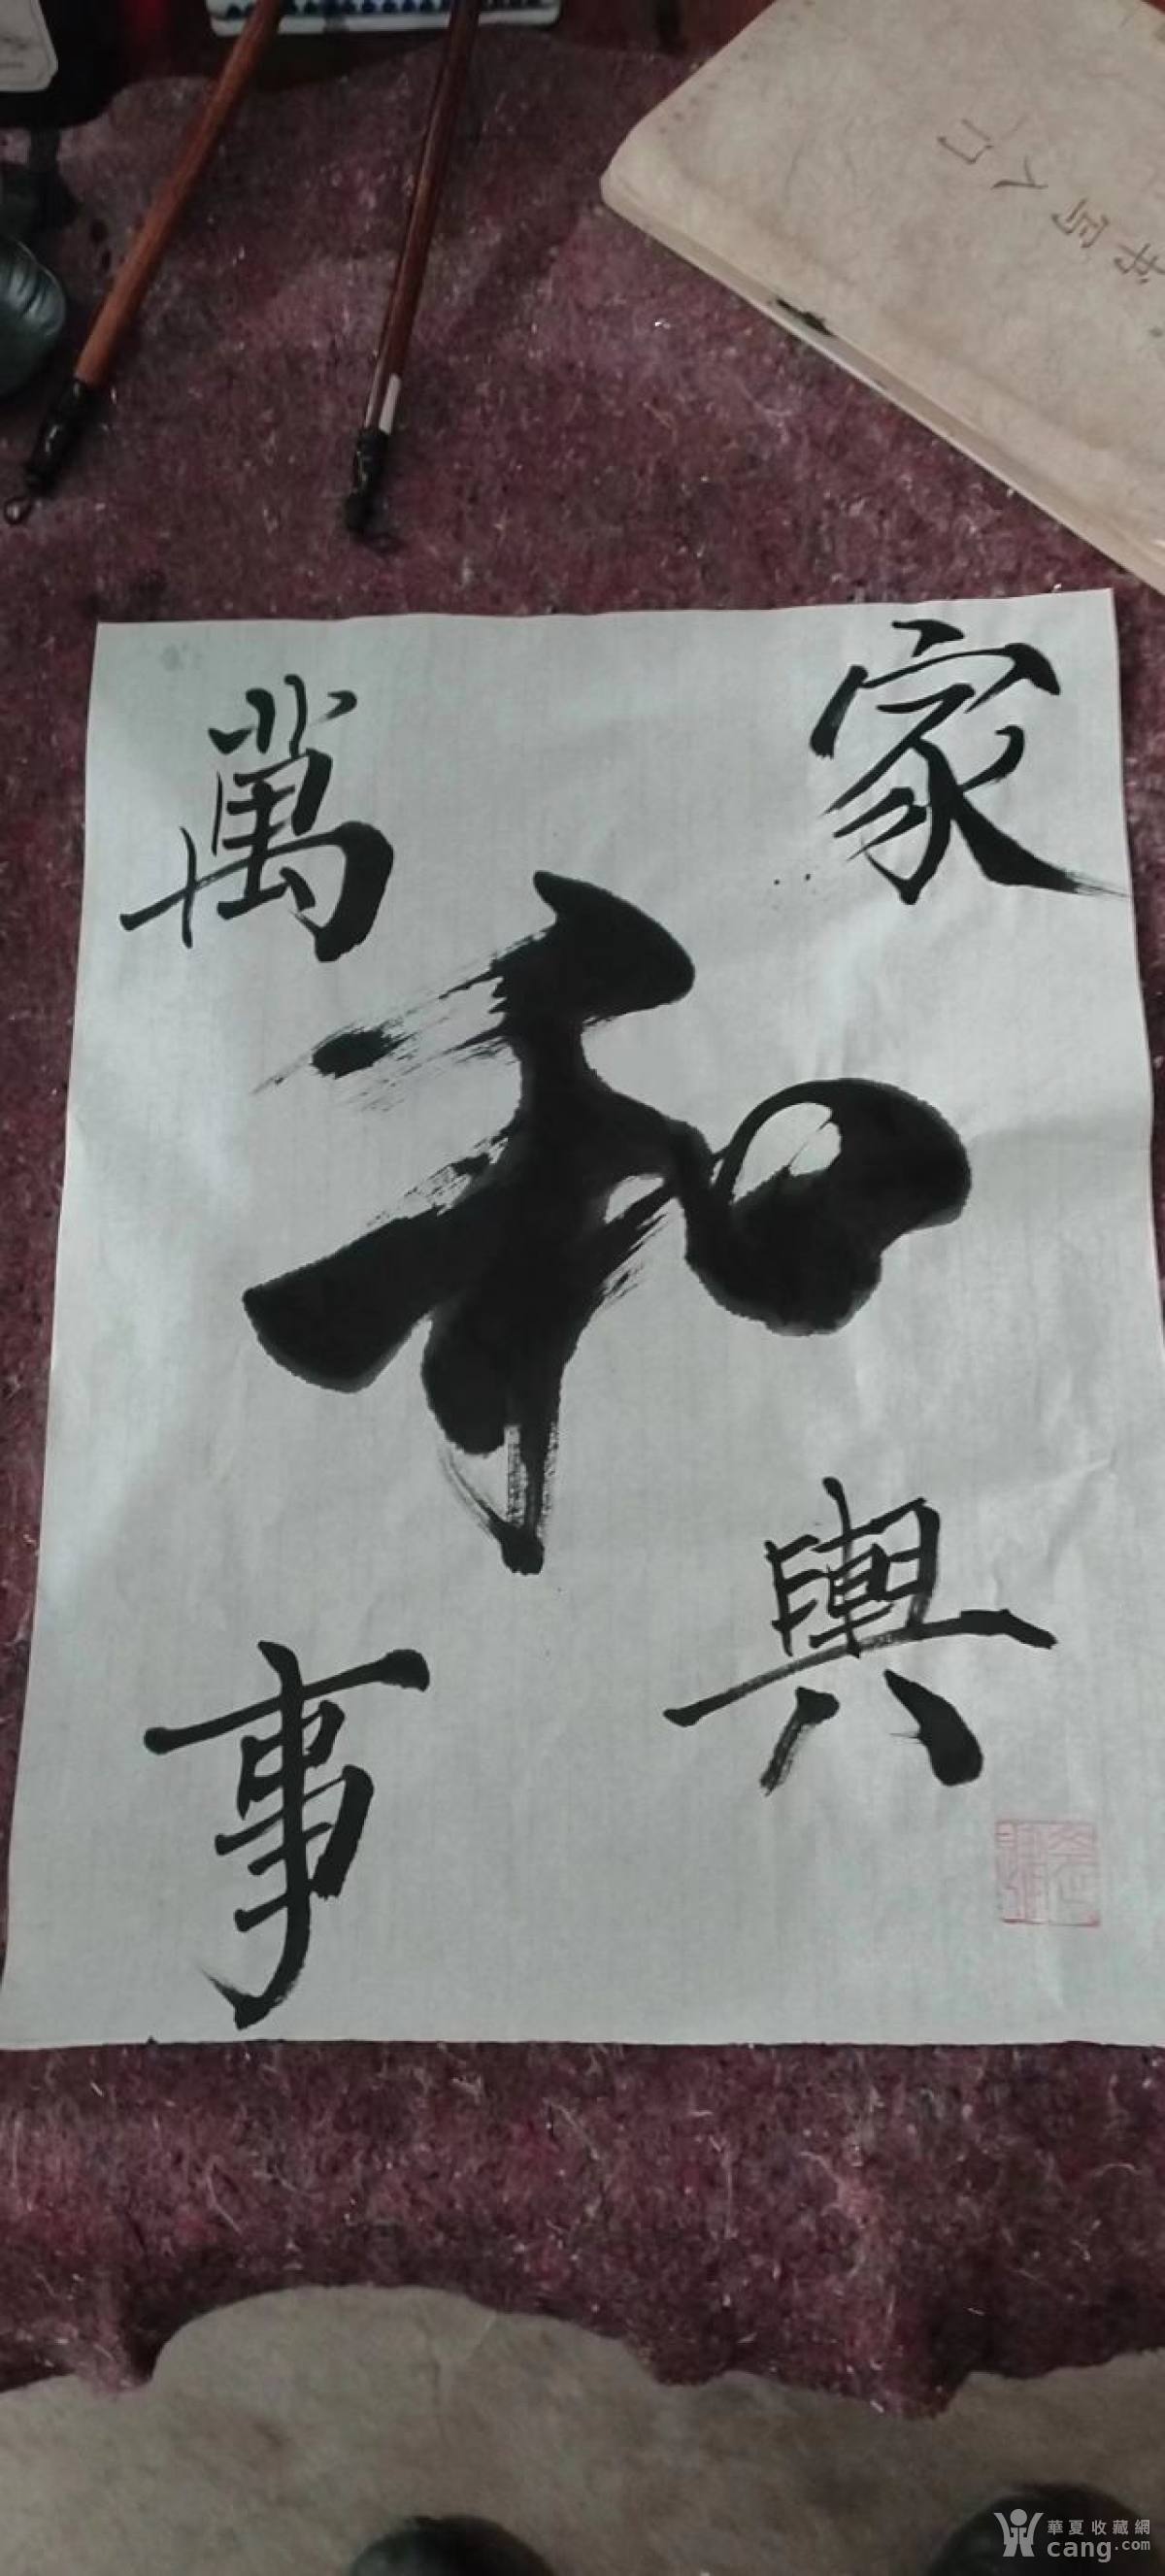 家和萬事興
華夏收藏網
cang.com